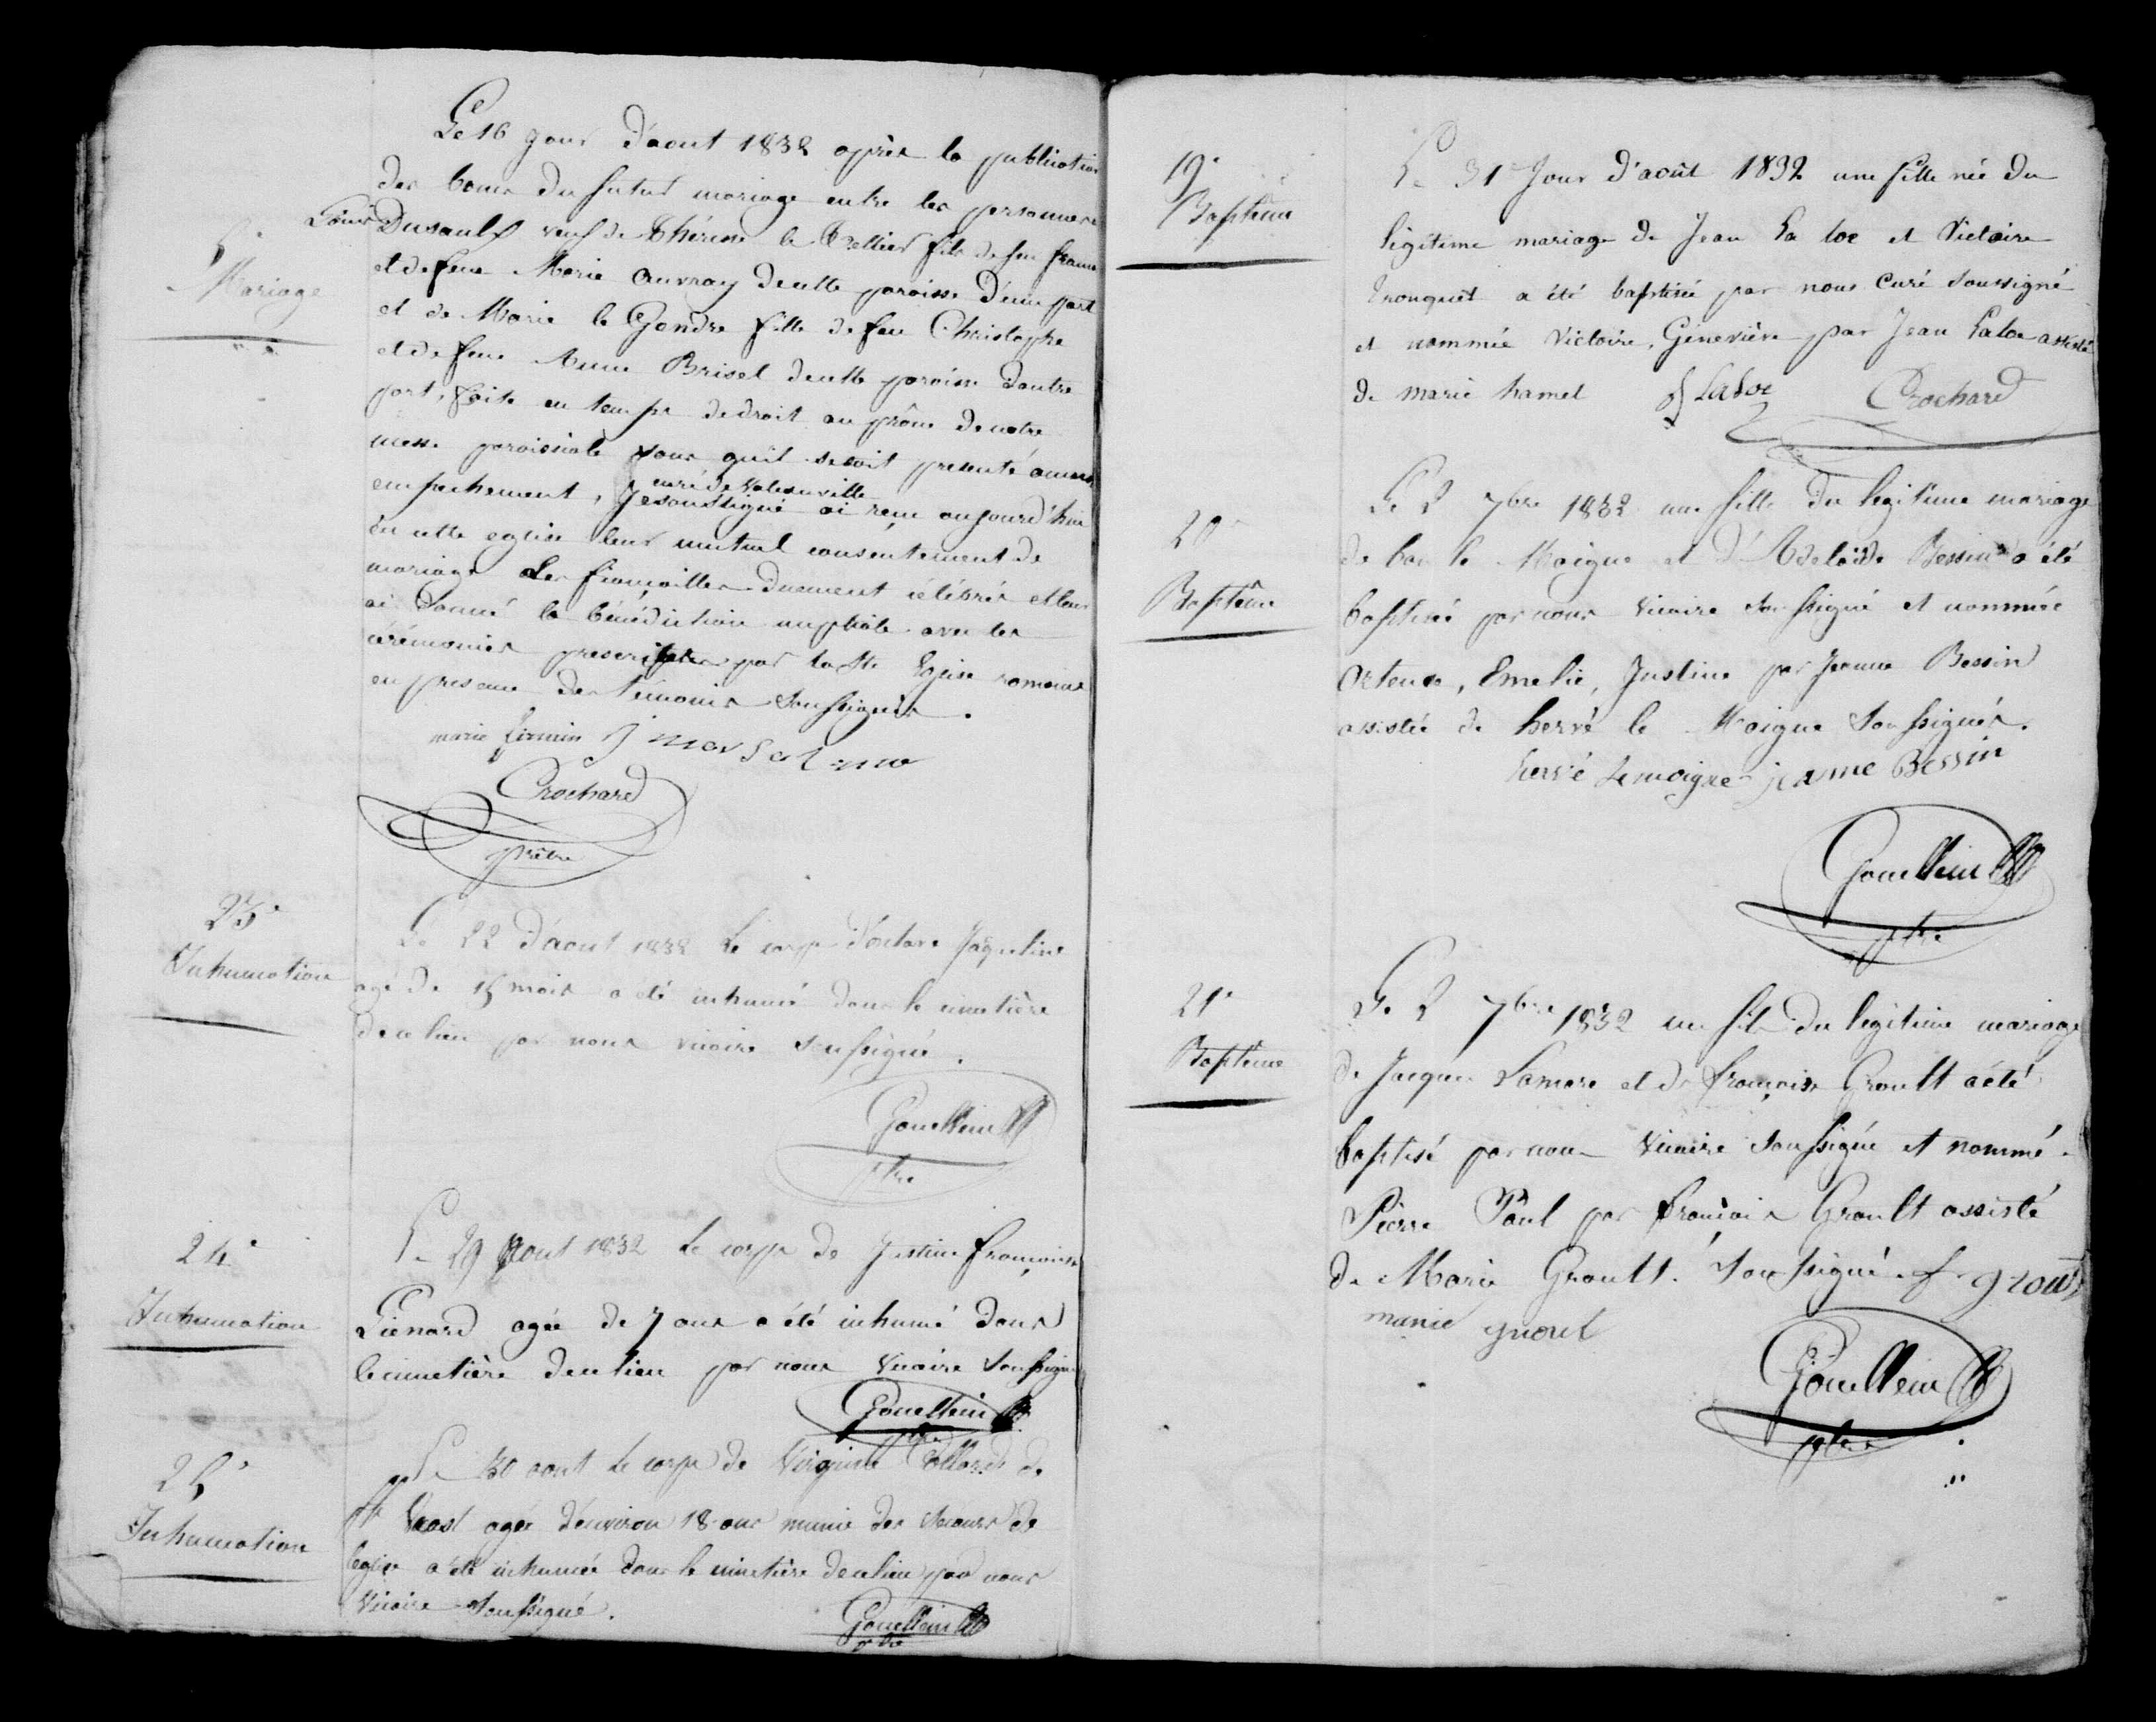 5e
Mariage
Le 16 jour d'aout 1832 après la publication
des bans du futur mariage entre les personnes
Louis Dusault veuf de Thérèse le Tellier fils de feu
et de feue Marie Auvray de cette paroisse d'une part
et de Marie le Gendre fille de feu Christophe
et de feue Anne Brisel de cette paroisse d'autre
part, faite en temps de droit au prône de notre
messe paroissiale sans qu'il se soit presenté aucun
curé de
empechement, Je soussigné ai reçu aujourd'hui
en cette eglise leur mutuel consentement de
mariage les fiançailles duement célébrés et leur
ai donné la bénédiction nuptiale avec les
cérémonies prescrites par la Ste Eglise romaine
en presence des témoins soussignés.
marie firmin
Crochard
prêtre
23e
Inhumation
Le 22 d'aout 1832 Le corps d'octave Jaqueline
agé de 15 mois a été inhumé dans le cimetière
de ce lieu par nous vicaire soussigné.
Gouelleu
ptre
24e
Inhumation
Le 29 aout 1832 Le corps de Justine françoise
Lienard agée de 7 ans a été inhumé dans
le cimetière de ce lieu par nous vicaire soussigné
Gouelleu
ptre
25e
Inhumation
Le 30 aout Le corps de Virginie de
St Vaast agée d'environ 18 ans munie des secours de
leglise a été inhumée dans le cimetière de ce lieu par nous
vicaire soussigné.
Gouelleu
ptre
19e
Baptême
Le 31e Jour d'août 1832 une fille née du
légitime mariage de Jean La loe et Victoire
Tronquet a été baptisée par nous Curé soussigné
et nommée Victoire, Géneviève par Jean Laloe assisté
de marie hamel J Laloe Crochard
20e
Baptême
Le 2 7bre 1832 une fille du legitime mariage
de le Moigne et d'Adelaïde Bessin a été
baptisée par nous vicaire soussigné et nommée
Ortense, Emelie, Justine par Jeanne Bessin
assistée de hervé le Moigne soussignés.
hervé Lemoigne jeanne Bessin
Gouelleu
ptre
21e
Baptême
Le 2 7bre 1832 un fils du legitime mariage
de Jacques Lamare et de françoise Groult a été
baptisé par nous vicaire soussigné et nommé
Pierre Paul par françois Groult assisté
de Marie Groult. soussigné. f groult
marie grout
Gouelleu
ptre